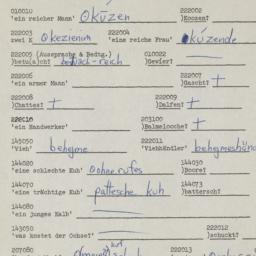 010010 222002
'ein reicher Mann' oküzen )Koozen?
222003 222004
zwei K okezienim 'eine reiche Frau' okúzende
222005 (Aussprache & Bedtg.) 010022
)betu(a)ch? betuach-reich )Gewier?
222006 222007
'ein armer Mann' )Gascht? +
222008 222009
)Chattes? + )Dalfen? +
222010 203100
'ein Handwerker' )Balmelooche? +
145050 222011
'Vieh' behgme 'Viehhändler'
144020 144030
'eine schlechte Kuh' )Boore?
144070 144073
'eine trächtige Kuh' pattesche kuh )battersch?
144080
'ein junges Kalb'
143050 222012
'was kostet der Ochse?' )schuckt?
207080 222013